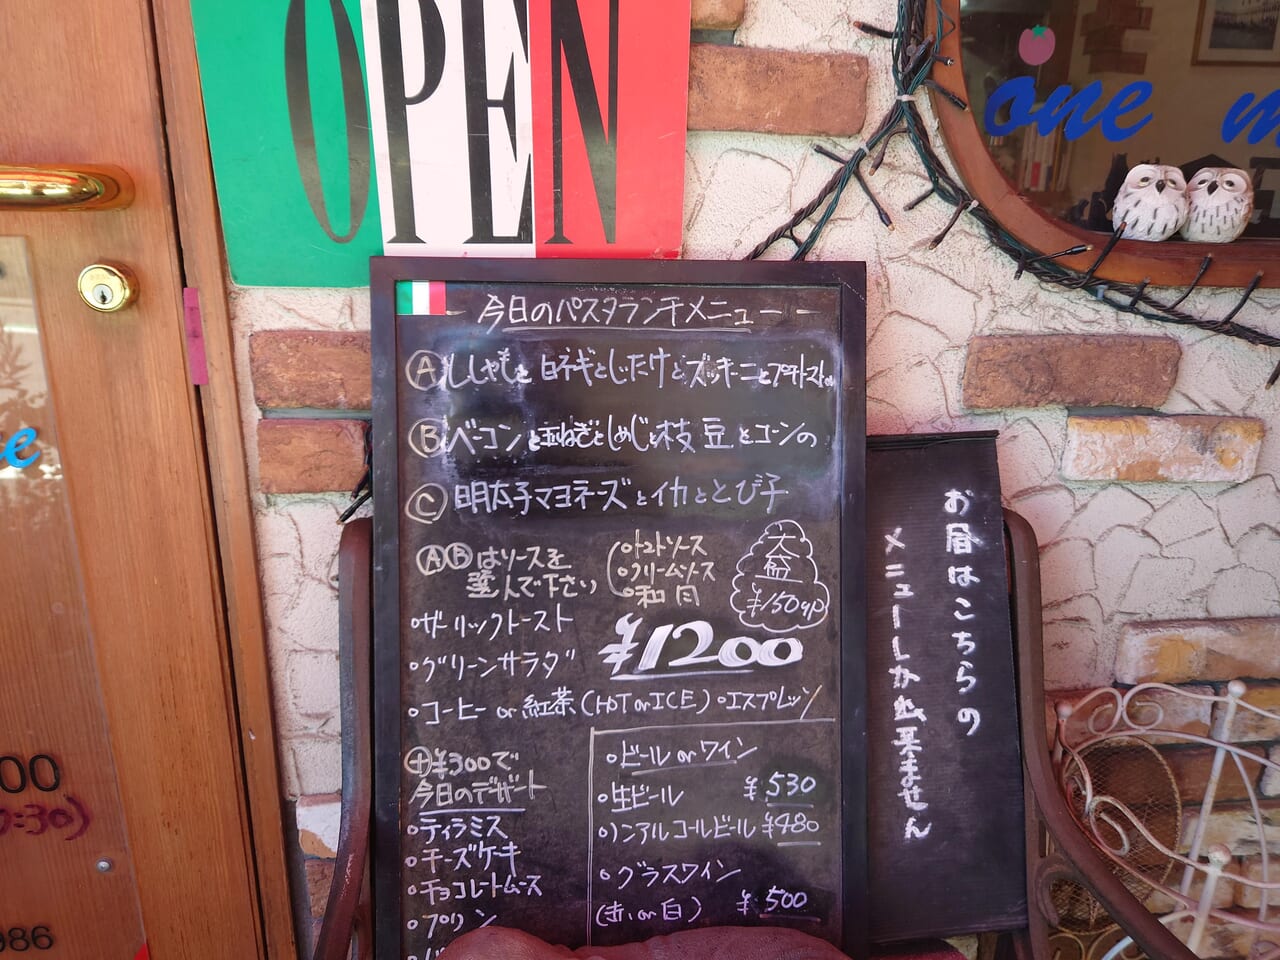 OPEN
one
今日のパスタランチメニュー
Ⓐ ししゃもと白ネギとしいたけとズッキーニとプチトマトの
Ⓑ ベーコンと玉ねぎとしめじと枝豆とコーンの
Ⓒ 明太子マヨネーズとイカととび子
ⒶⒷはソースを
選んで下さい
○トマトソース
○クリームソース
○和風
大盛
¥150up
・ガーリックトースト
・グリーンサラダ
¥1200
○コーヒー or 紅茶 (HOT or ICE) ○エスプレッソ
⊕¥300で
今日のデザート
○ティラミス
○チーズケーキ
○チョコレートムース
○プリン
○ビール or ワイン
○生ビール ¥530
○ノンアルコールビール ¥480
○グラスワイン
(赤 or 白) ¥500
お昼はこちらの
メニューしか出来ません
00
:30)
986